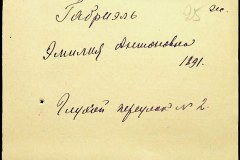 Габриэль
25 Дек.
Эмилия Антоновна
1891.
Глухой переулок № 2